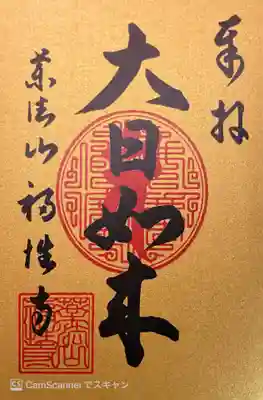 奉拝
大日如来
薬法山福性寺
CS CamScanner でスキャン